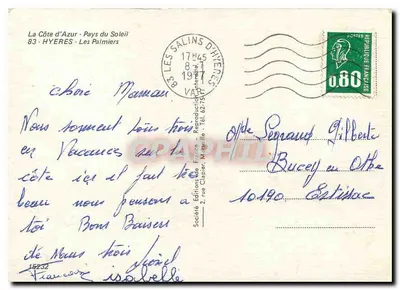 La Côte d'Azur - Pays du Soleil
83 - HYERES - Les Palmiers
83 LES SALINS D'HYERES
17H45
8-1
1977
VAR
REPUBLIQUE FRANÇAISE
0,80
chère Maman
Nous sommes tous trois
en Vacances sur la
côte ici il fait très
beau nous pensons a
toi Bons Baisers
de Nous trois
Francois
isabelle
15232
Segrand Gilberte
Bucey en Othe
10190 Estissac